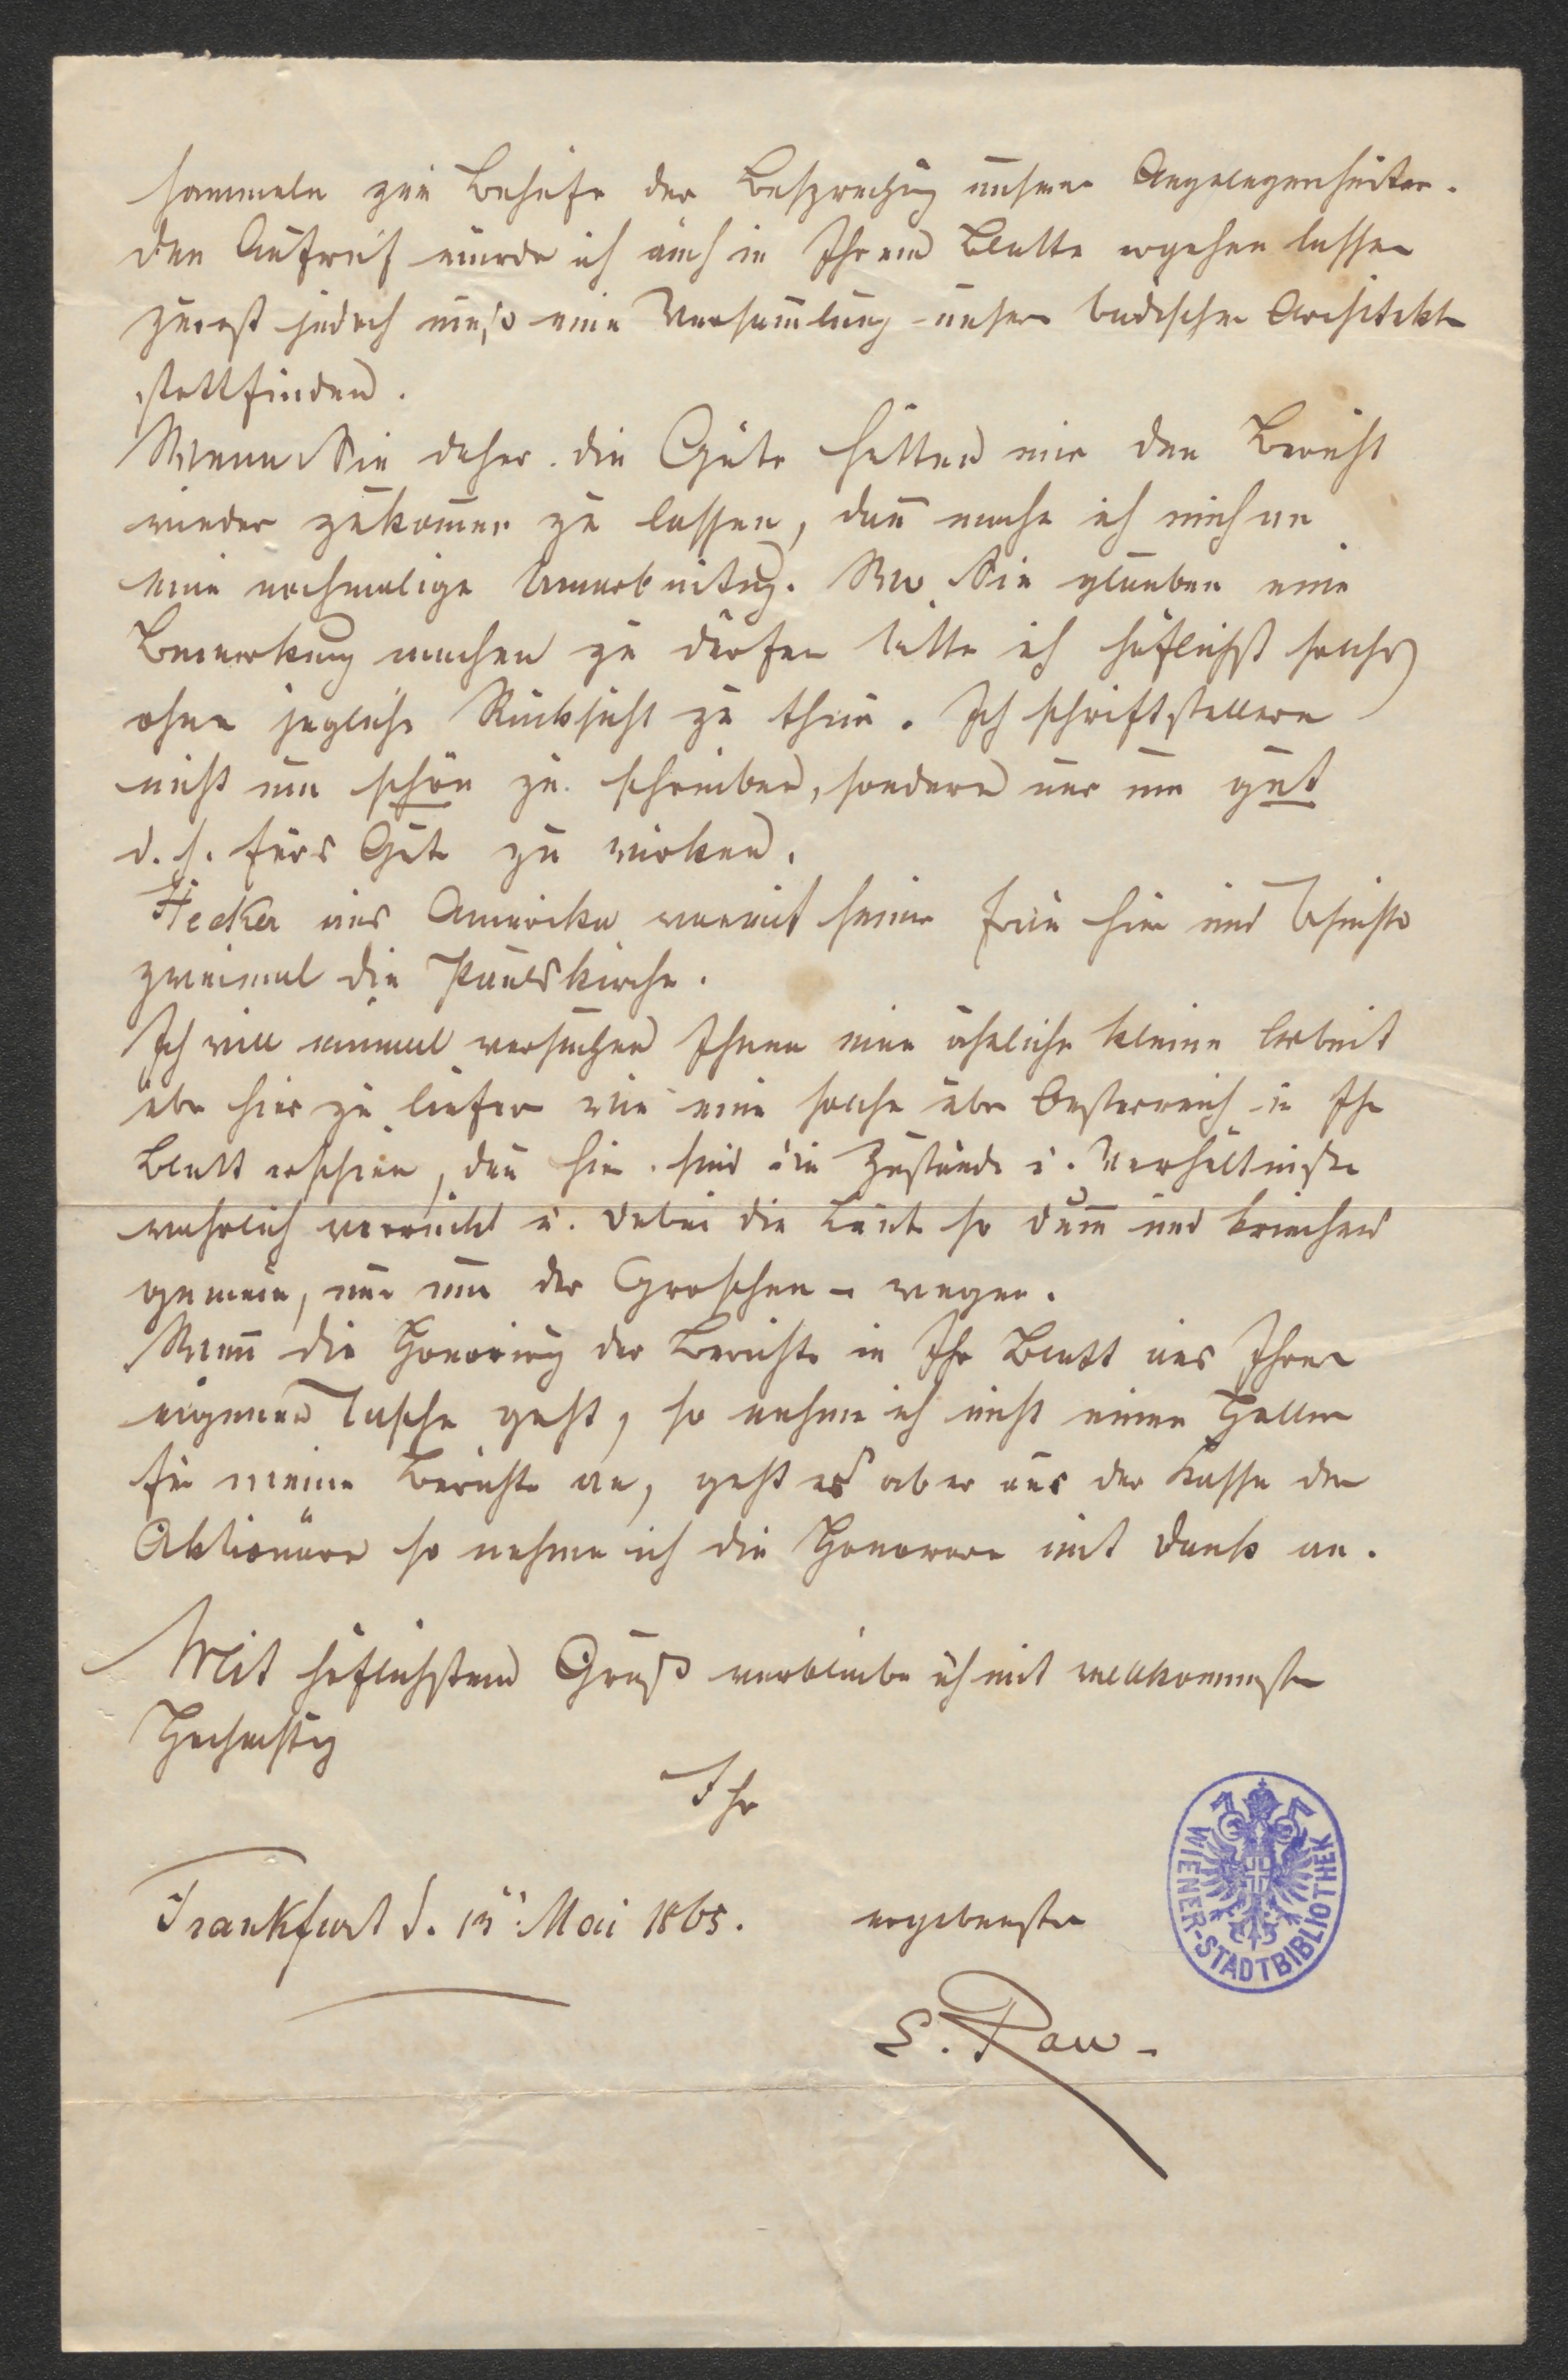 sammeln zum Behufe der Besprechung unserer Angelegenheiten.
Den Aufruf würde ich auch in Ihrem Blatte ergehen lassen
zuerst jedoch muß eine Versammlung unserer badischen Architekten
stattfinden.
Wenn Sie daher die Güte hätten mir den Bericht
wieder zukommen zu lassen, dann mache ich mich an
eine nochmalige Umarbeitung. Wo Sie glauben eine
Bemerkung machen zu dürfen bitte ich höflichst solches
ohne jegliche Rücksicht zu thun. Ich schriftstellere
nicht um schön zu schreiben, sondern nur um gut
d. h. fürs Gute zu wirken.
Hecker aus Amerika war mit seiner Frau hier und besuchte
zweimal die Paulskirche.
Ich will einmal versuchen Ihnen eine ähnliche kleine Arbeit
über hier zu liefern wie eine solche über Oesterreich in Ihr
Blatt erschien, denn hier sind die Zustände u. Verhältnisse
wahrlich verrückt u. dabei die Leute so dumm und kriechend
gemein, nur um der Groschen wegen.
Wenn die Honorirung der Berichte in Ihr Blatt aus Ihrer
eigenen Tasche geht, so nehme ich nicht einen Heller
für meine Berichte an, geht es aber aus der Kasse der
Aktionäre so nehme ich die Honorare mit Dank an.
Mit höflichstem Gruß verbleibe ich mit vollkommenster
Hochachtung
Ihr
Frankfurt d. Mai 1865. ergebenster
E. Rau
WIENER-STADTBIBLIOTHEK